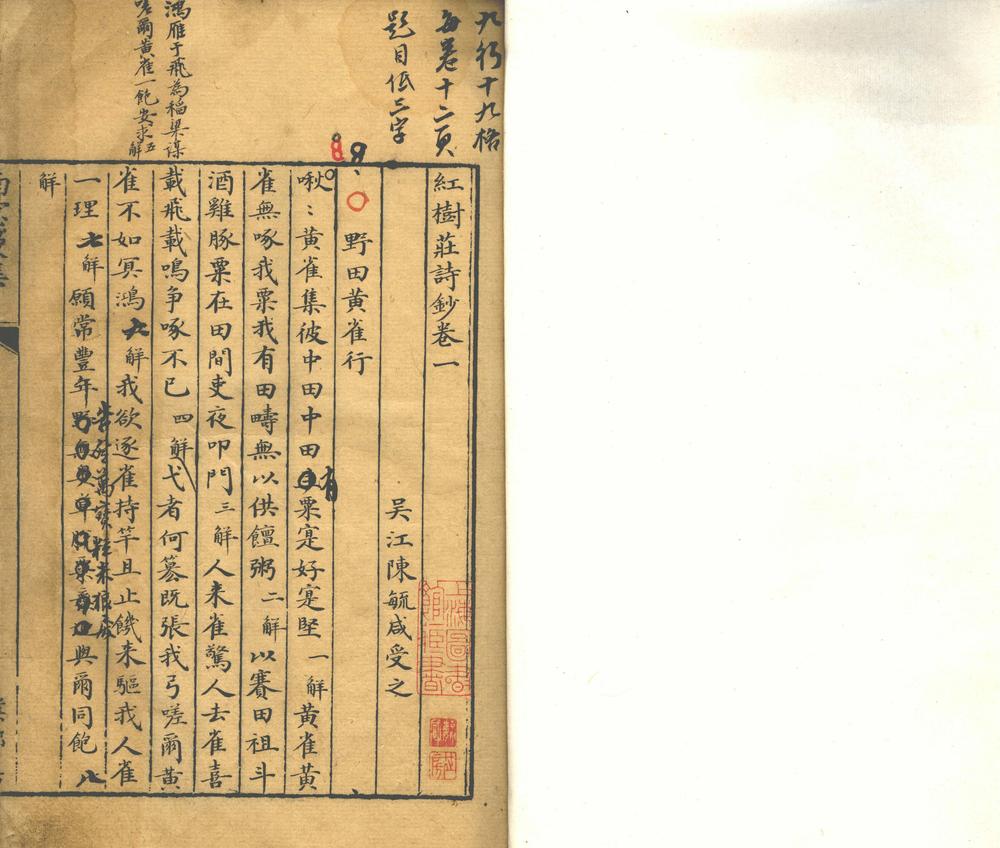 九行十九格
每卷十二頁
題目低三字
紅樹莊詩鈔卷一
吳江陳毓咸受之
野田黃雀行
啾〻黃雀集彼中田中田有粟寔好寔堅一解黃雀黃
雀無啄我粟我有田疇無以供饘粥二解以賽田祖斗
酒雞豚粟在田間吏夜叩門三解人来雀驚人去雀喜
載飛載鳴爭啄不已四解弋者何篡既張我弓嗟爾黃
鴻雁于飛為稻粱謀
嗟爾黃雀一飽安求五解
雀不如冥鴻六解我欲逐雀持竿且止饑来驅我人雀
一理七解願常豐年
粒米狼戾
與爾同飽八
解
上海圖書館藏書